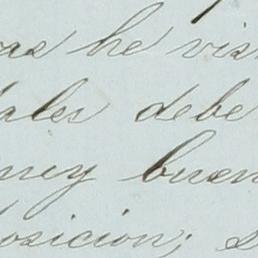 as he vis
ales debe
muy buen
osicion; s